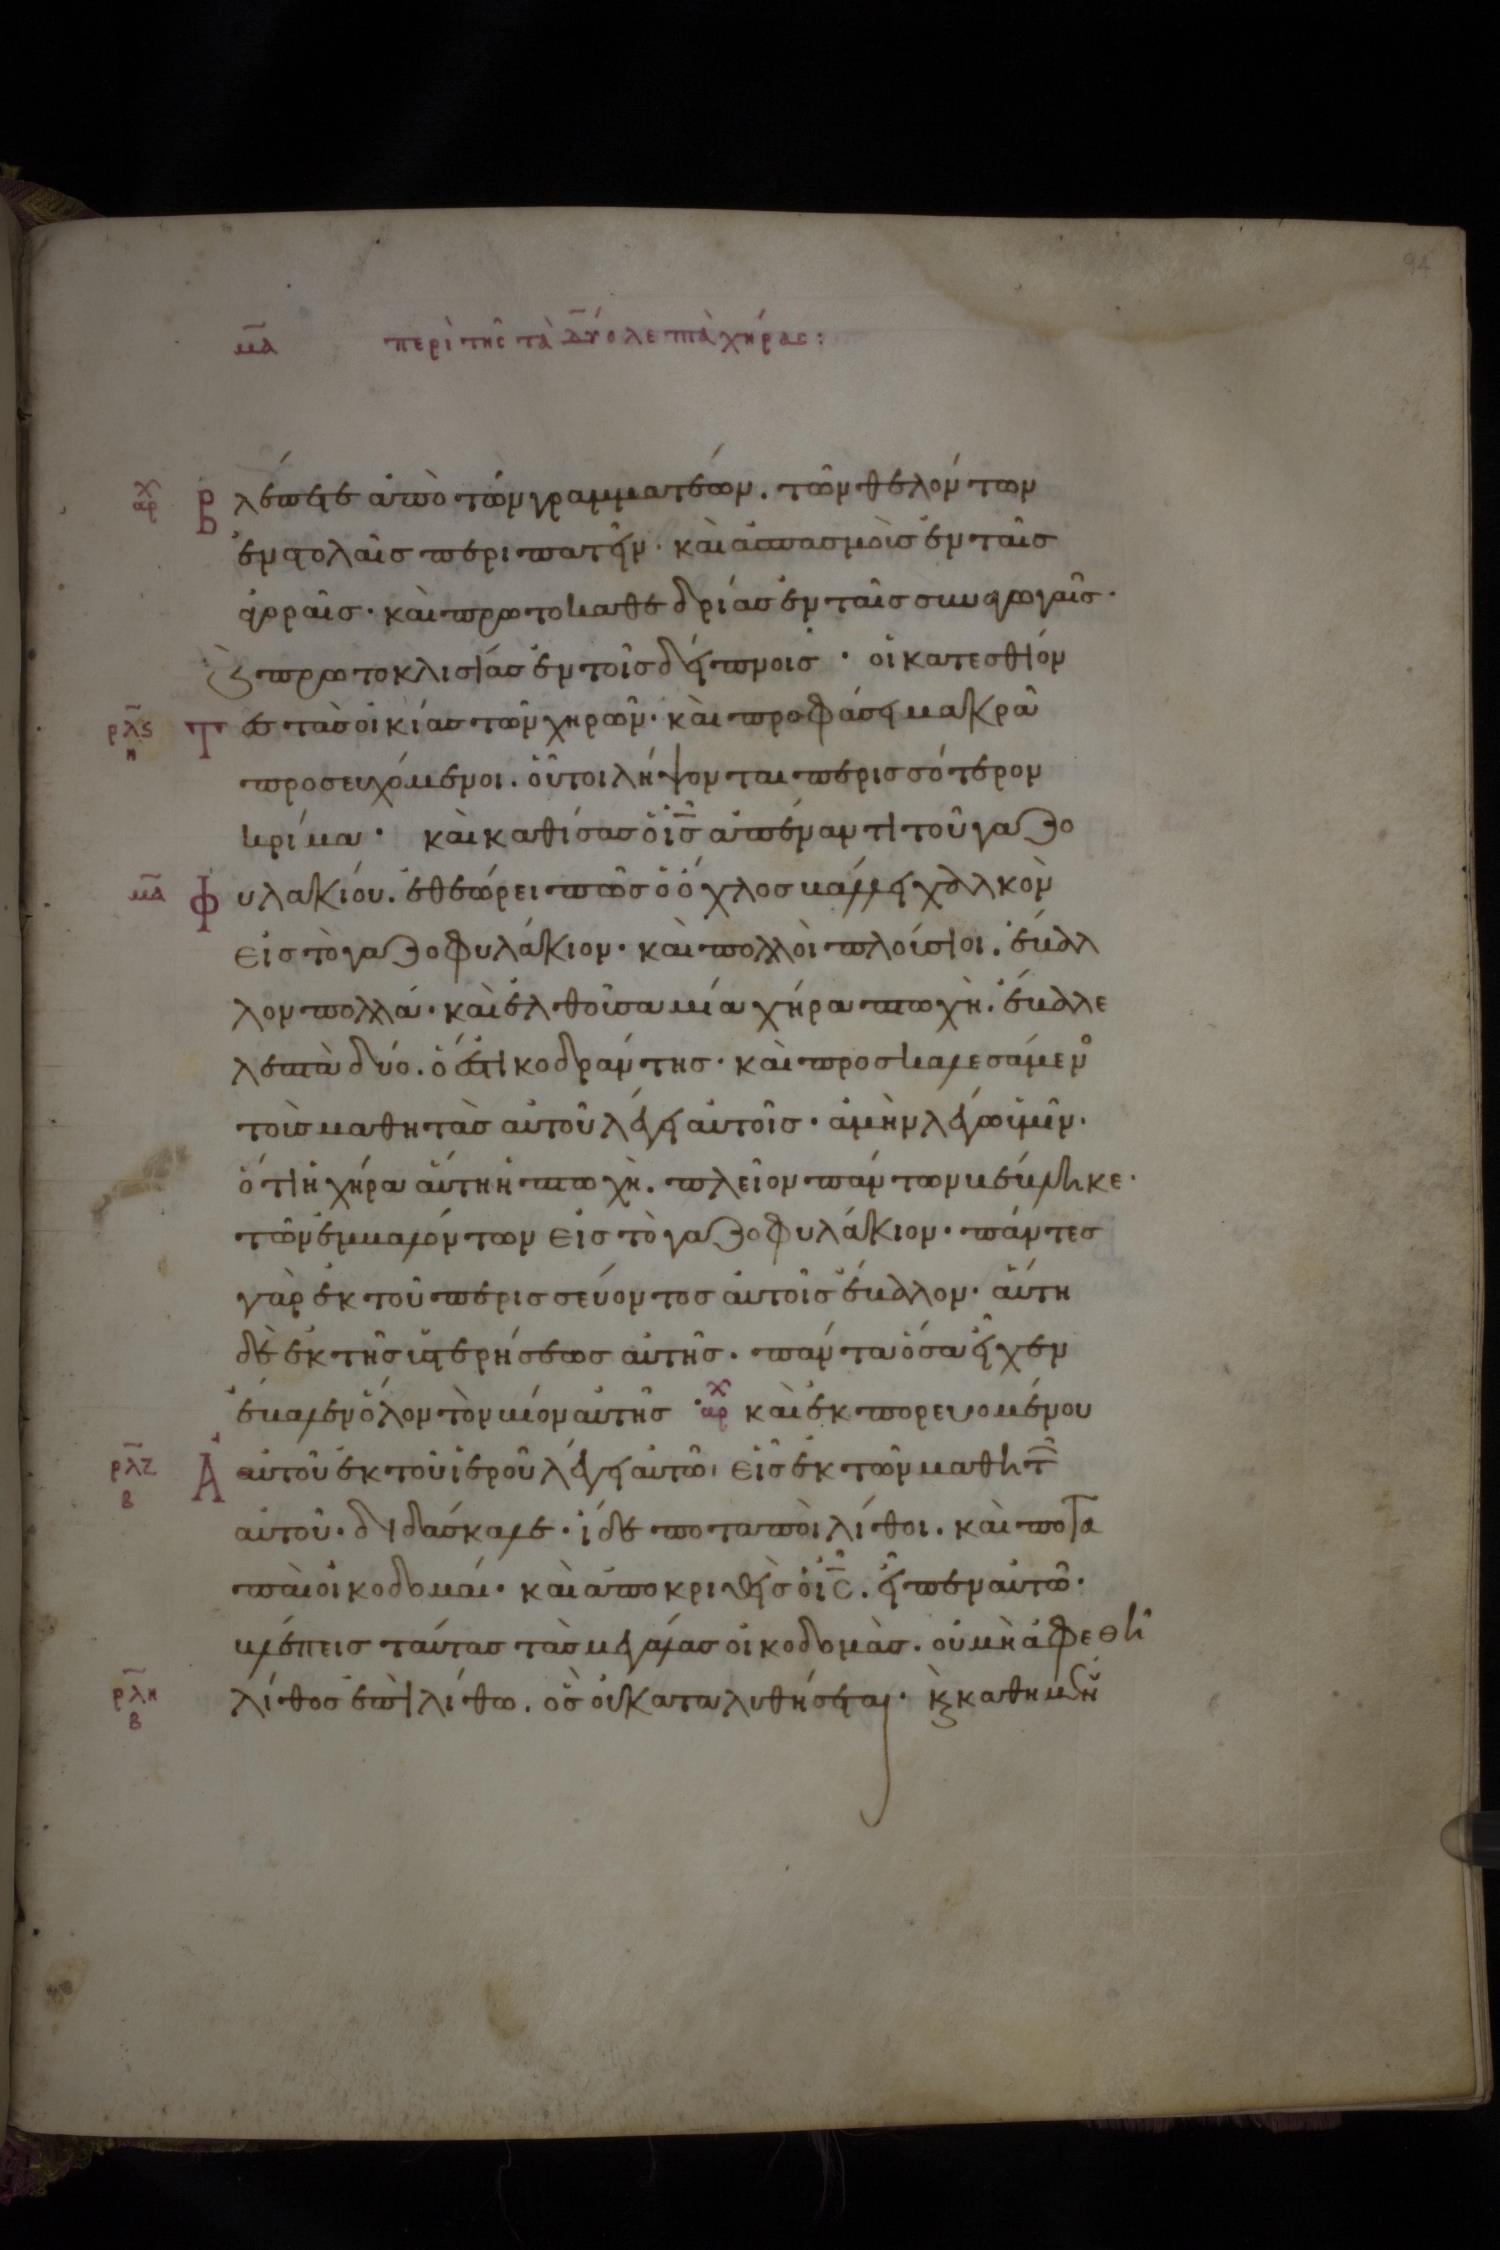 94
μα περὶ τῆς τὰ δύο λεπτὰ χήρας:
αρχ Βλέπετε ἀπὸ τῶν γραμματέων. τῶν θελόντων
ἐν στολαῖς περιπατεῖν· καὶ ἀσπασμοὺς ἐν ταῖς
ἀγοραῖς· καὶ πρωτοκαθεδρίας ἐν ταῖς συναγωγαῖς·
καὶ πρωτοκλισίας ἐν τοῖς δείπνοις · οἱ κατεσθίον
ρλς η Τες τὰς οἰκίας τῶν χηρῶν· καὶ προφάσει μακρᾶ
προσευχόμενοι. οὗτοι λήψονται περισσότερον
κρίμα· καὶ καθίσας ὁ ις ἀπέναντι τοῦ γαζο
μα Φυλακίου. ἐθεώρει πῶς ὁ ὄχλος βάλλει χαλκὸν
εἰς τὸ γαζοφυλάκιον· καὶ πολλοὶ πλούσιοι. ἔβαλ
λον πολλά· καὶ ἐλθοῦσα μία χήρα πτωχὴ. ἔβαλε
λεπτὰ δύο. ὅ ἐστι κοδράντης· καὶ προσκαλεσάμεν
τοὺς μαθητὰς αὐτοῦ λέγει αὐτοῖς· ἀμὴν λέγω ὑμῖν·
ὅτι ἡ χήρα αὕτη ἡ πτωχὴ. πλεῖον πάντων βέβληκε·
τῶν ἐμβαλόντων εἰς τὸ γαζοφυλάκιον· πάντες
γὰρ ἐκ τοῦ περισσεύοντος αὐτοῖς ἔβαλον· αὕτη
δὲ ἐκ τῆς ὑστερήσεως αὐτῆς· πάντα ὅσα εἶχεν
ἔβαλεν ὅλον τὸν βίον αὐτῆς · αρχ καὶ ἐκπορευομένου
ρλζ β Ααὐτοῦ ἐκ τοῦ ἱεροῦ λέγει αὐτῶ, εἷς ἐκ τῶν μαθητ
αὐτοῦ· διδάσκαλε· ἴδε ποταποὶ λίθοι. καὶ ποτα
παὶ οἰκοδομαί· καὶ ἀποκριθεὶς ὁ ις. εἶπεν αὐτῶ·
βλέπεις ταύτας τὰς μεγάλας οἰκοδομὰς. οὐ μὴ ἀφεθῆ
ρλη β λίθος ἐπὶ λίθω. ὃς οὐ καταλυθήσεται· κ καθημεν